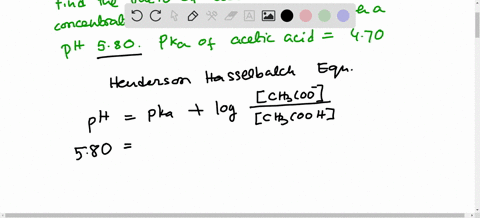 find the
concentra
pH 5.80. Pka of acetic acid = 4.70
Henderson Hasselbalch Eqn.
pH = pka + log [CH3COO-] / [CH3COOH]
5.80 =